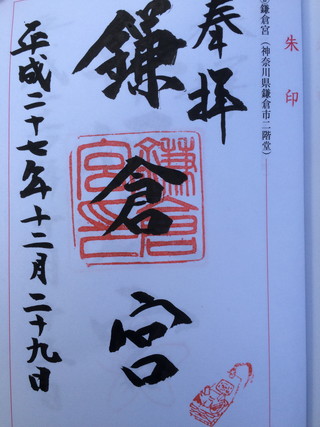 朱印
鎌倉宮（神奈川県鎌倉市二階堂）
奉拝
鎌倉宮
鎌倉宮印
平成二十七年十二月二十九日